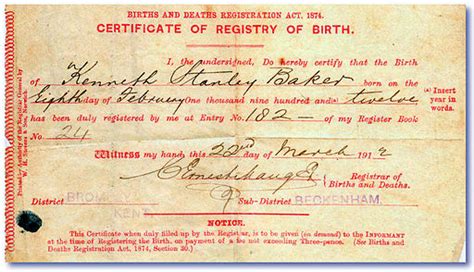 BIRTHS AND DEATHS REGISTRATION ACT, 1874.
CERTIFICATE OF REGISTRY OF BIRTH.
I, the undersigned, Do hereby certify that the Birth
of Kenneth Stanley Baker born on the
Eighth day of February One thousand nine hundred and (a) twelve
(a) Insert year in words.
has been duly registered by me at Entry No. 182 of my Register Book
No. 24
Witness my hand this 22nd day of March 1912
Registrar of
Births and Deaths.
District BROMLEY KENT Sub-District BECKENHAM.
NOTICE.
This Certificate when duly filled up by the Registrar, is to be given (on demand) to the INFORMANT
at the time of Registering the Birth, on payment of a fee not exceeding Three-pence. (See Births and
Deaths Registration Act, 1874, Section 30.)